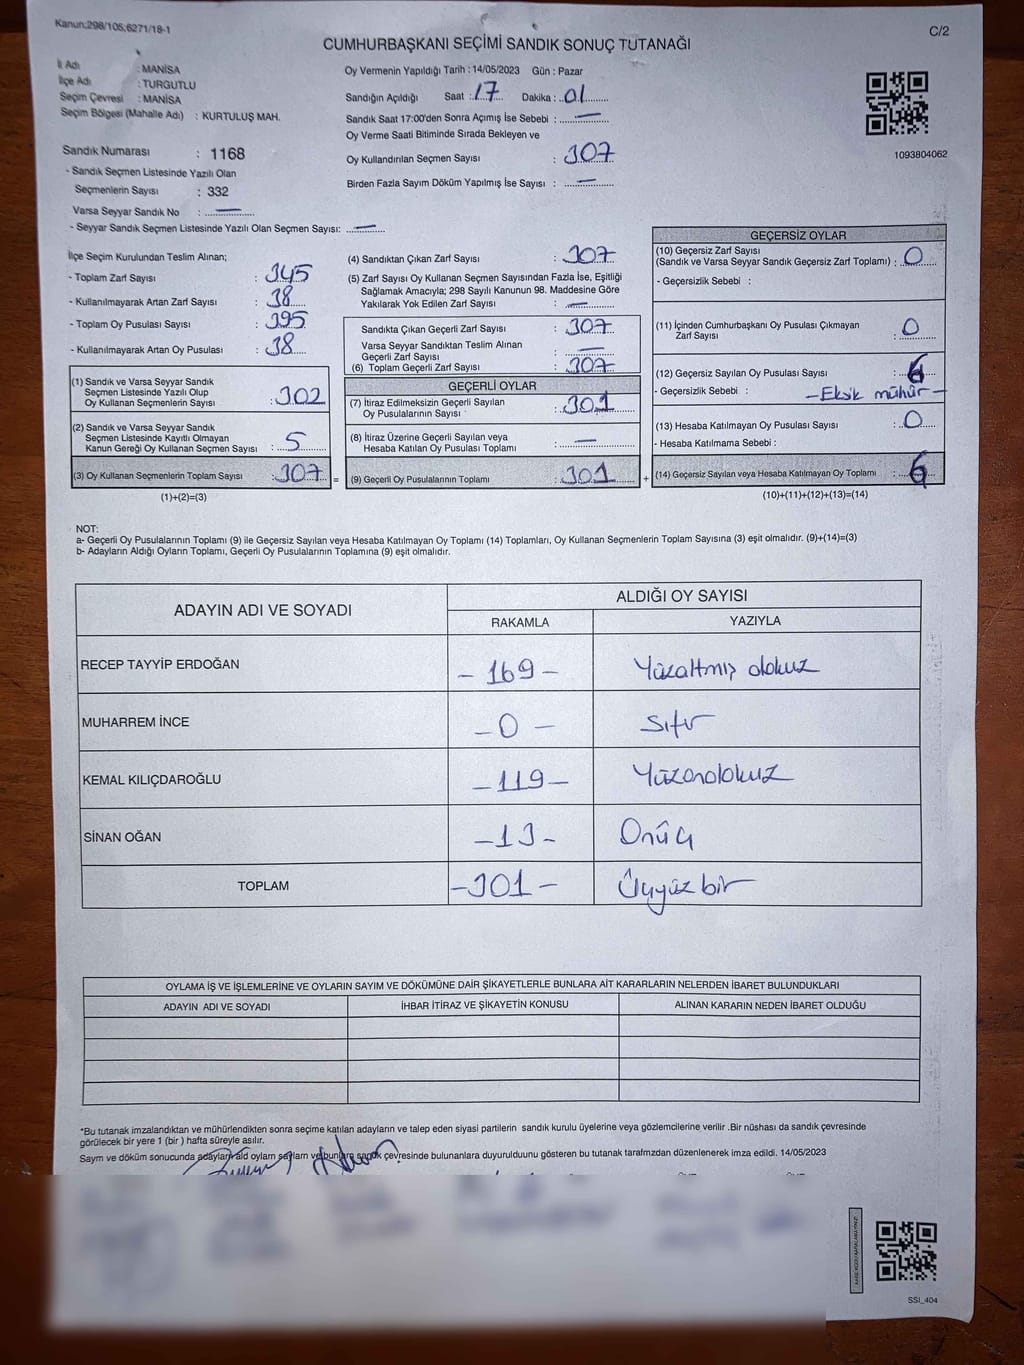 Kanun:298/105;6271/18-1
C/2
CUMHURBAŞKANI SEÇİMİ SANDIK SONUÇ TUTANAĞI
İl Adı : MANİSA
İlçe Adı : TURGUTLU
Seçim Çevresi : MANİSA
Seçim Bölgesi (Mahalle Adı) : KURTULUŞ MAH.
Sandık Numarası : 1168
- Sandık Seçmen Listesinde Yazılı Olan
Seçmenlerin Sayısı : 332
Varsa Seyyar Sandık No : —
- Seyyar Sandık Seçmen Listesinde Yazılı Olan Seçmen Sayısı: —
Oy Vermenin Yapıldığı Tarih : 14/05/2023 Gün : Pazar
Sandığın Açıldığı Saat : 17 Dakika : 01
Sandık Saat 17:00'den Sonra Açımış İse Sebebi : —
Oy Verme Saati Bitiminde Sırada Bekleyen ve
Oy Kullandırılan Seçmen Sayısı : 307
Birden Fazla Sayım Döküm Yapılmış İse Sayısı : —
1093804062
İlçe Seçim Kurulundan Teslim Alınan;
- Toplam Zarf Sayısı : 345
- Kullanılmayarak Artan Zarf Sayısı : 38
- Toplam Oy Pusulası Sayısı : 395
- Kullanılmayarak Artan Oy Pusulası : 38
(1) Sandık ve Varsa Seyyar Sandık
Seçmen Listesinde Yazılı Olup
Oy Kullanan Seçmenlerin Sayısı : 302
(2) Sandık ve Varsa Seyyar Sandık
Seçmen Listesinde Kayıtlı Olmayan
Kanun Gereği Oy Kullanan Seçmen Sayısı : 5
(3) Oy Kullanan Seçmenlerin Toplam Sayısı : 307 =
(1)+(2)=(3)
(4) Sandıktan Çıkan Zarf Sayısı : 307
(5) Zarf Sayısı Oy Kullanan Seçmen Sayısından Fazla İse, Eşitliği
Sağlamak Amacıyla; 298 Sayılı Kanunun 98. Maddesine Göre
Yakılarak Yok Edilen Zarf Sayısı : —
Sandıkta Çıkan Geçerli Zarf Sayısı : 307
Varsa Seyyar Sandıktan Teslim Alınan
Geçerli Zarf Sayısı : —
(6) Toplam Geçerli Zarf Sayısı : 307
GEÇERLİ OYLAR
(7) İtiraz Edilmeksizin Geçerli Sayılan
Oy Pusulalarının Sayısı : 301
(8) İtiraz Üzerine Geçerli Sayılan veya
Hesaba Katılan Oy Pusulası Toplamı : —
(9) Geçerli Oy Pusulalarının Toplamı : 301 +
GEÇERSİZ OYLAR
(10) Geçersiz Zarf Sayısı
(Sandık ve Varsa Seyyar Sandık Geçersiz Zarf Toplamı) : 0
- Geçersizlik Sebebi :
(11) İçinden Cumhurbaşkanı Oy Pusulası Çıkmayan
Zarf Sayısı : 0
(12) Geçersiz Sayılan Oy Pusulası Sayısı : 6
- Geçersizlik Sebebi : — Eksik mühür —
(13) Hesaba Katılmayan Oy Pusulası Sayısı : 0
- Hesaba Katılmama Sebebi :
(14) Geçersiz Sayılan veya Hesaba Katılmayan Oy Toplamı : 6
(10)+(11)+(12)+(13)=(14)
NOT:
a- Geçerli Oy Pusulalarının Toplamı (9) ile Geçersiz Sayılan veya Hesaba Katılmayan Oy Toplamı (14) Toplamları, Oy Kullanan Seçmenlerin Toplam Sayısına (3) eşit olmalıdır. (9)+(14)=(3)
b- Adayların Aldığı Oyların Toplamı, Geçerli Oy Pusulalarının Toplamına (9) eşit olmalıdır.
ADAYIN ADI VE SOYADI
ALDIĞI OY SAYISI
RAKAMLA YAZIYLA
RECEP TAYYİP ERDOĞAN - 169 - Yüzaltmış dokuz
MUHARREM İNCE - 0 - Sıfır
KEMAL KILIÇDAROĞLU - 119 - Yüzondokuz
SİNAN OĞAN - 13 - Onüç
TOPLAM - 301 - Üçyüz bir
OYLAMA İŞ VE İŞLEMLERİNE VE OYLARIN SAYIM VE DÖKÜMÜNE DAİR ŞİKAYETLERLE BUNLARA AİT KARARLARIN NELERDEN İBARET BULUNDUKLARI
ADAYIN ADI VE SOYADI İHBAR İTİRAZ VE ŞİKAYETİN KONUSU ALINAN KARARIN NEDEN İBARET OLDUĞU
*Bu tutanak imzalandıktan ve mühürlendikten sonra seçime katılan adayların ve talep eden siyasi partilerin sandık kurulu üyelerine veya gözlemcilerine verilir .Bir nüshası da sandık çevresinde
görülecek bir yere 1 (bir ) hafta süreyle asılır.
Sayım ve döküm sonucunda adayların ald oyların sayları ve bunlara sandık çevresinde bulunanlara duyurulduunu gösteren bu tutanak tarafmzdan düzenlenerek imza edildi. 14/05/2023
SSI_404